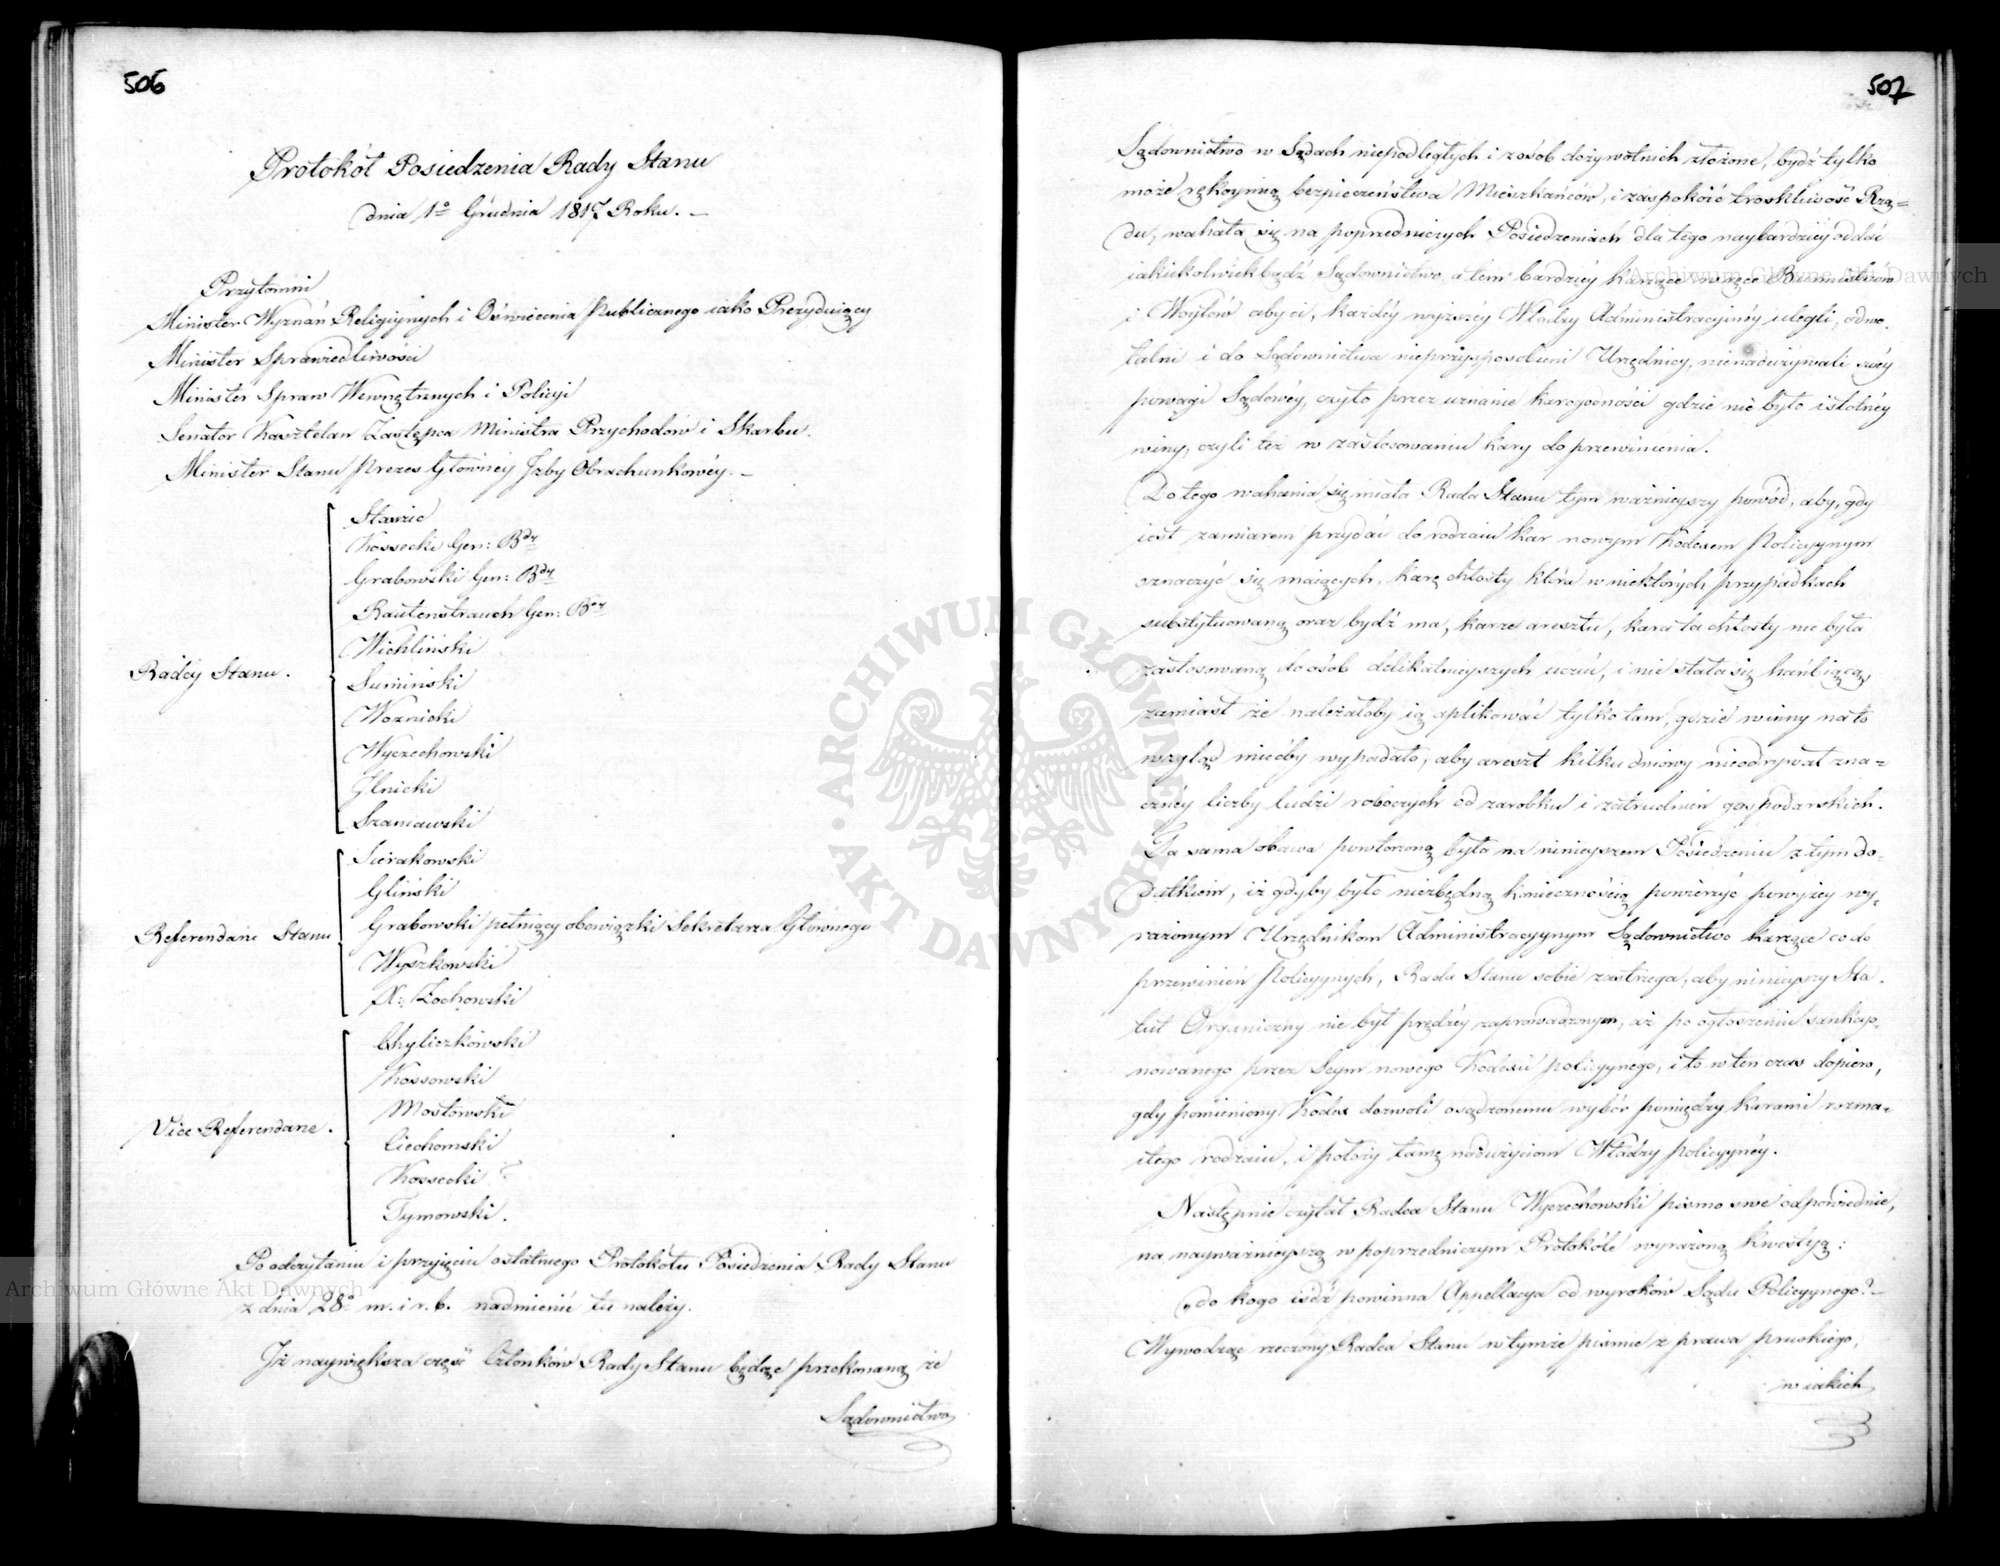 506
Protokół Posiedzenia Rady Stanu
dnia 1º Grudnia 1817 Roku. —
Przytomni
Minister Wyznań Religiynych i Oświecenia Publicznego iako Prezyduiący
Minister Sprawiedliwości
Minister Spraw Wewnętrznych i Policyi
Senator Kasztelan Zastępca Ministra Przychodów i Skarbu.
Minister Stanu Prezes Główney Izby Obrachunkowéy. —
Radcy Stanu.
Staszic
Kossecki Gen: Bdy
Grabowski Gen: Bdy
Rautenstrauch Gen: Bdy
Wichliński
Sumiński
Woznicki
Wyczechowski
Ilnicki
Szaniawski
Referendarze Stanu
Sierakowski
Gliński
Grabowski pełniący obowiązki Sekretarza Głównego
Wyszkowski
X: Zochowski
Vice Referendarze.
Chyliczkowski
Kossowski
Mostowski
Ciechomski
Kossecki ?
Tymowski.
Po odczytaniu i przyięciu ostatniego Protokołu Posiedzenia Rady Stanu
z dnia 28º m. i r. b. nadmienić tu należy.
Iż naywiększa część Członków Rady Stanu będąc przekonaną że
Sądownictwo
507
Sądownictwo w Sądach niepodległych i z osób dożywotnich złożone, bydź tylko
może rękoymią bezpieczeństwa Mieszkańców, i zaspokoić troskliwość Rzą=
du, wahała się na poprzedniczych Posiedzeniach dla tego naybardziéy oddać
iakiekolwiekbądź Sądownictwo a tém bardziéy karzące w ręce Burmistrzów
i Woytów aby ci, każdéy wyższéy Władzy Administracyinéy ulegli, odwo-
łalni i do Sądownictwa nieprzysposobieni Urzędnicy, nienadużywali swéy
powagi Sądowéy, czyto przez uznanie karogodności gdzie nie było istotnéy
winy, czyli też w zastosowaniu kary do przewinienia.
Do tego wahania się miała Rada Stanu tym ważnieyszy powód, aby, gdy
iest zamiarem przydać do rodzaiu kar nowym Kodexem Policyynym
oznaczyć się maiących, karę chłosty która w niektórych przypadkach
substytuowaną oraz bydź ma, karze aresztu, kara ta chłosty nie była
zastosowaną do osób delikatnieyszych uczuć, i nie stała się hańbiącą,
zamiast że należałoby ią aplikować tylko tam, gdzie winny na to
wzgląd miećby wypadało, aby areszt kilkudniowy nieodrywał zna=
cznéy liczby ludzi roboczych od zarobku i zatrudnień gospodarskich.
Ta sama obawa powtorzoną była na ninieyszem Posiedzeniu z tym do-
datkiem, iż gdyby było niezbędną koniecznością powierzyć powyżey wy-
rażonym Urzędnikom Administracyynym Sądownictwo karzące co do
przewinień Policyynych, Rada Stanu sobie zastrzega, aby ninieyszy Sta-
tut Organiczny nie był prędzéy zaprowadzonym, aż po ogłoszeniu sankcyo-
nowanego przez Seym nowego Kodexu policyynego, i to w ten czas dopiero,
gdy pomieniony Kodex dozwoli osądzonemu wybór pomiędzy karami rozma-
itego rodzaiu, i położy tamę nadużyciom Władzy policyynéy.
Następnie czytał Radca Stanu Wyczechowski pismo swe odpowiednie,
na nayważnieyszą w poprzedniczym Protokóle wyrażoną kwestyą:
„do kogo iśdź powinna Appellacya od wyroków Sądu Policyynego? —
Wywodząc rzeczony Radca Stanu w tymże piśmie z prawa pruskiego,
w iakich
Archiwum Główne Akt Dawnych
Archiwum Główne Akt Dawnych
ARCHIWUM GŁÓWNE · AKT DAWNYCH ·